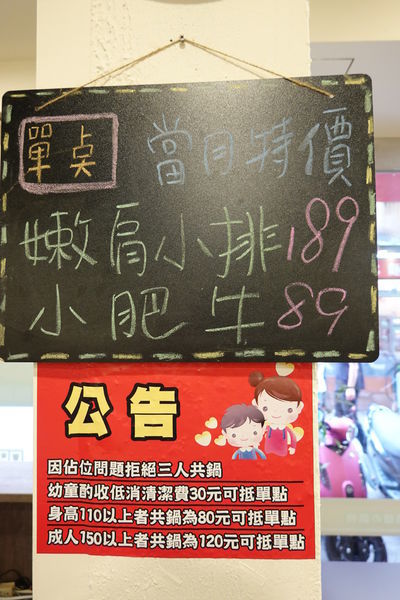 單点
當月特價
嫩肩小排189
小肥牛89
公告
因佔位問題拒絕三人共鍋
幼童酌收低消清潔費30元可抵單點
身高110以上者共鍋為80元可抵單點
成人150以上者共鍋為120元可抵單點